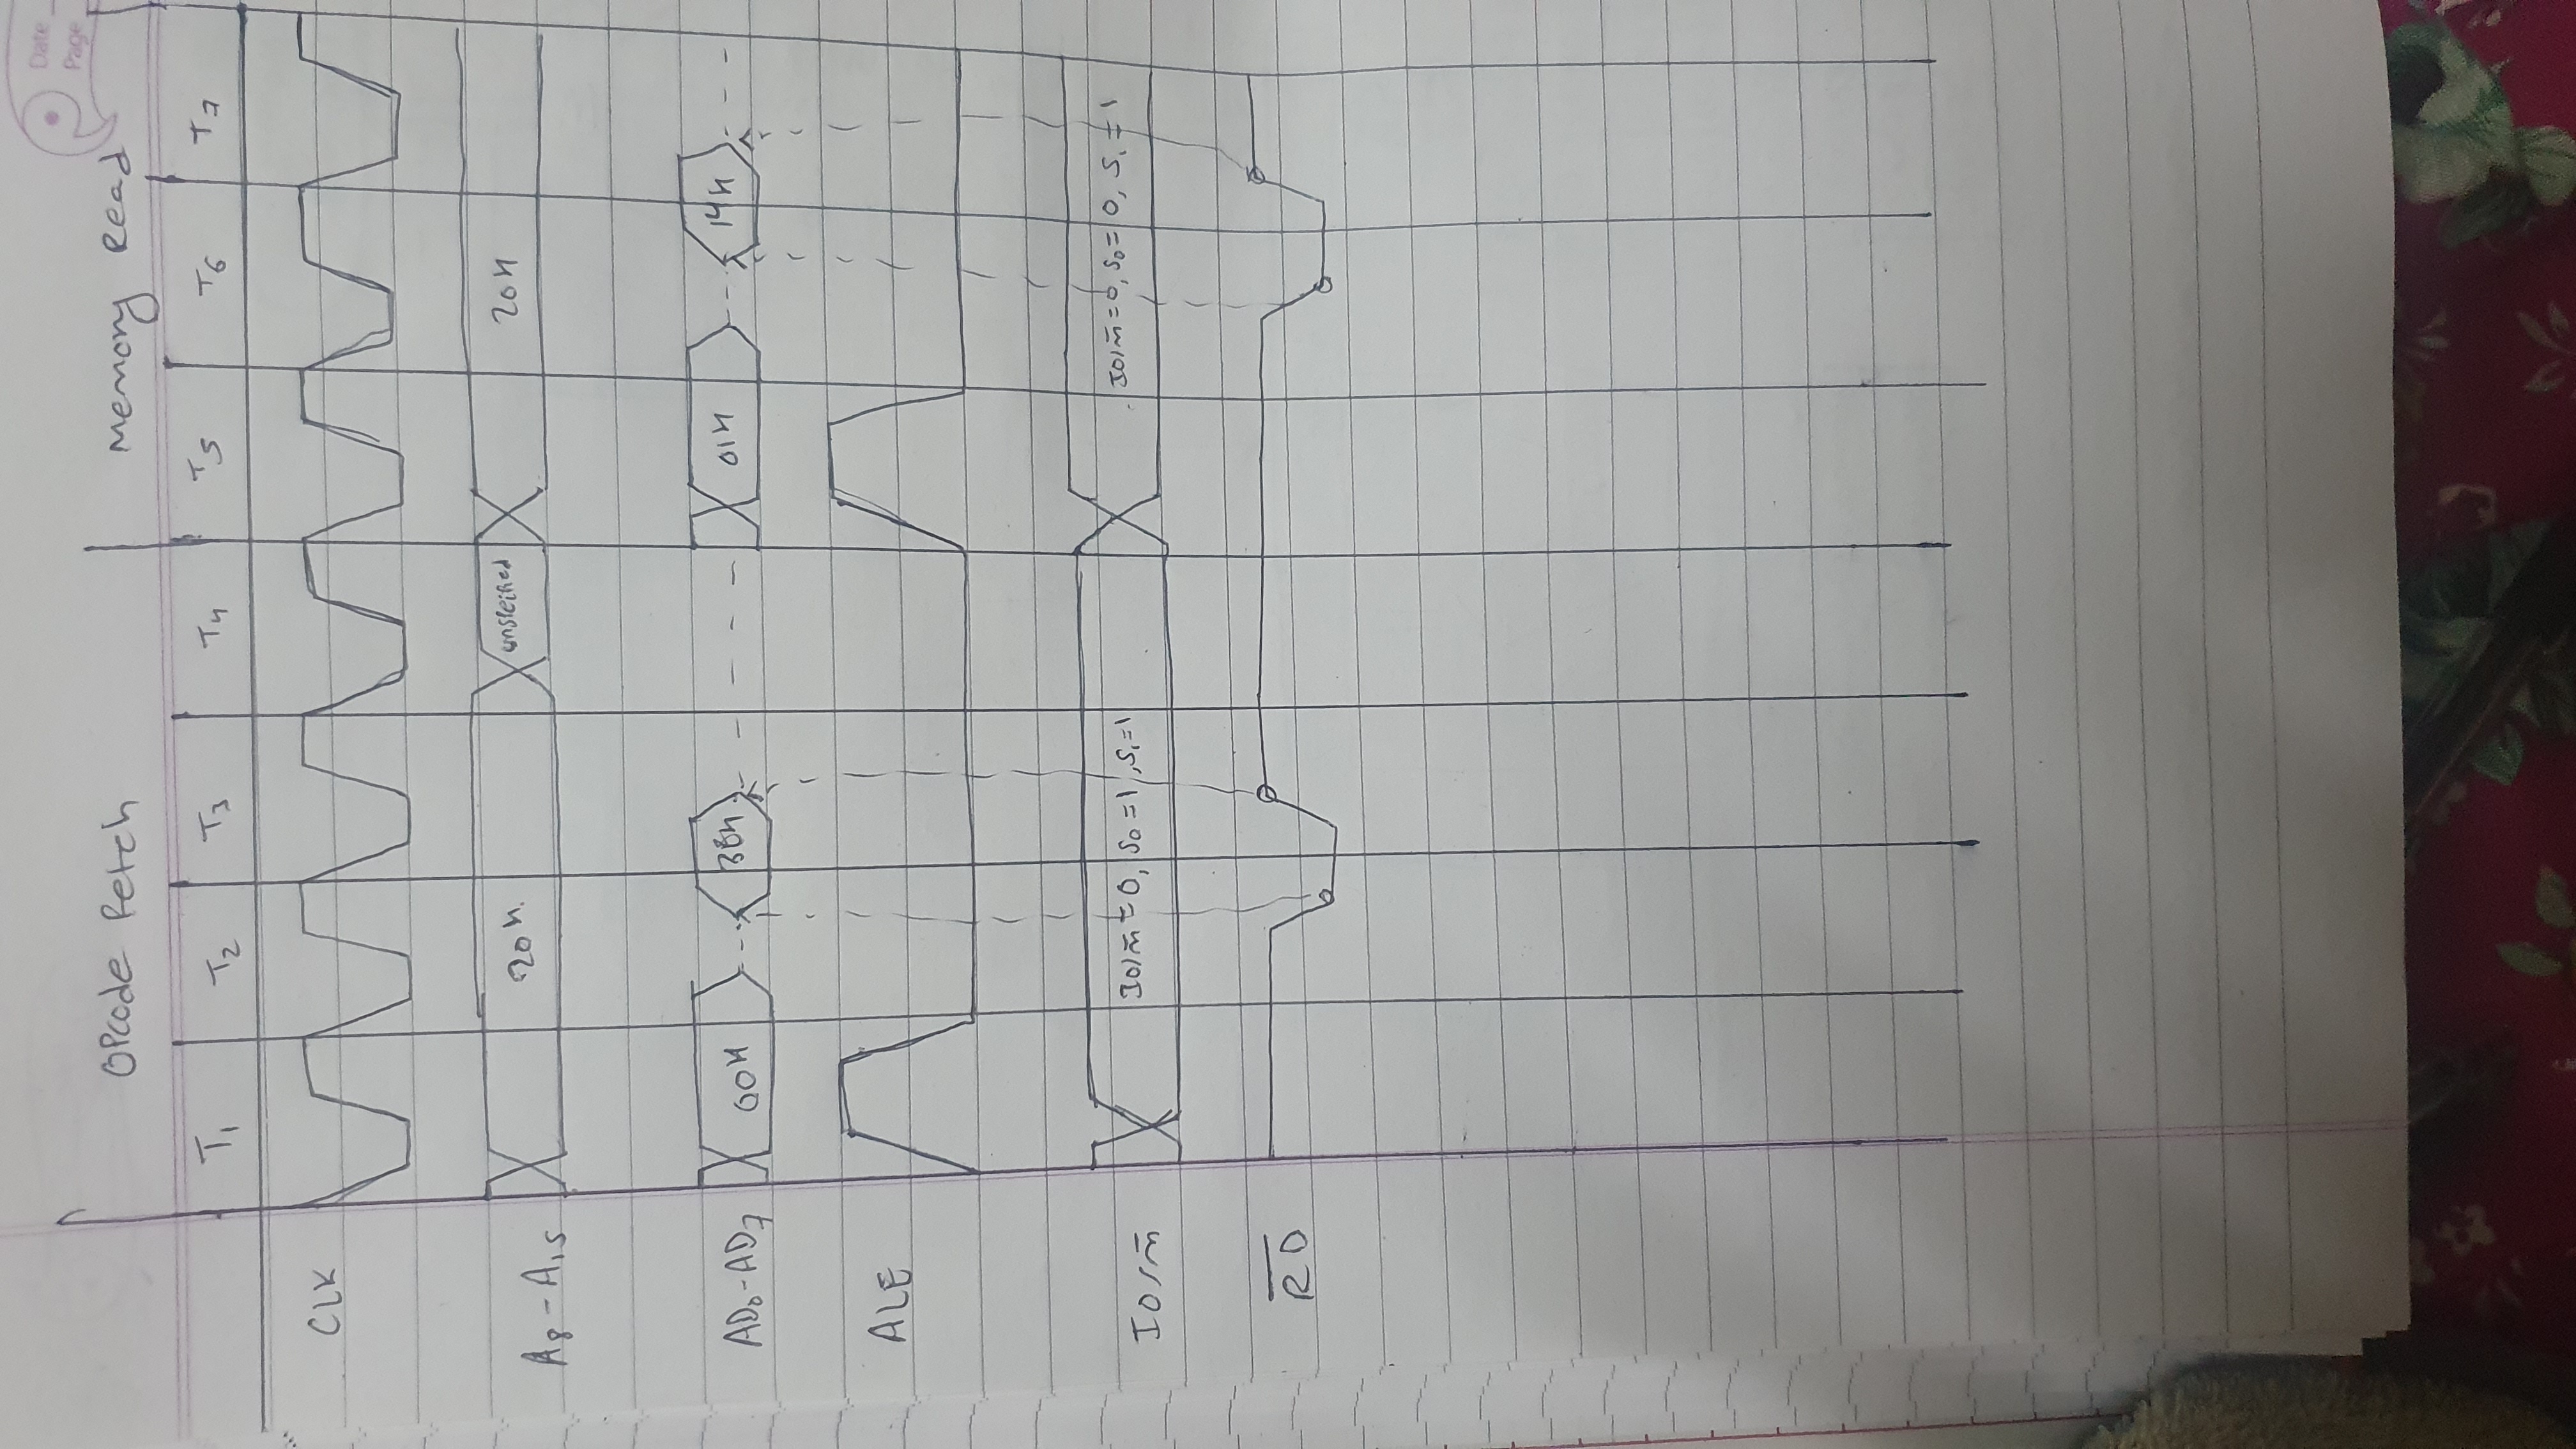 Date
Page
Opcode fetch Memory Read
T1 T2 T3 T4 T5 T6 T7
CLK
A8-A15 20H unspeified 20H
AD0-AD7 00H 3EH 01H 14H
ALE
IO/M̅ IO/M̅=0, S0=1, S1=1 IO/M̅=0, S0=0, S1=1
R̅D̅